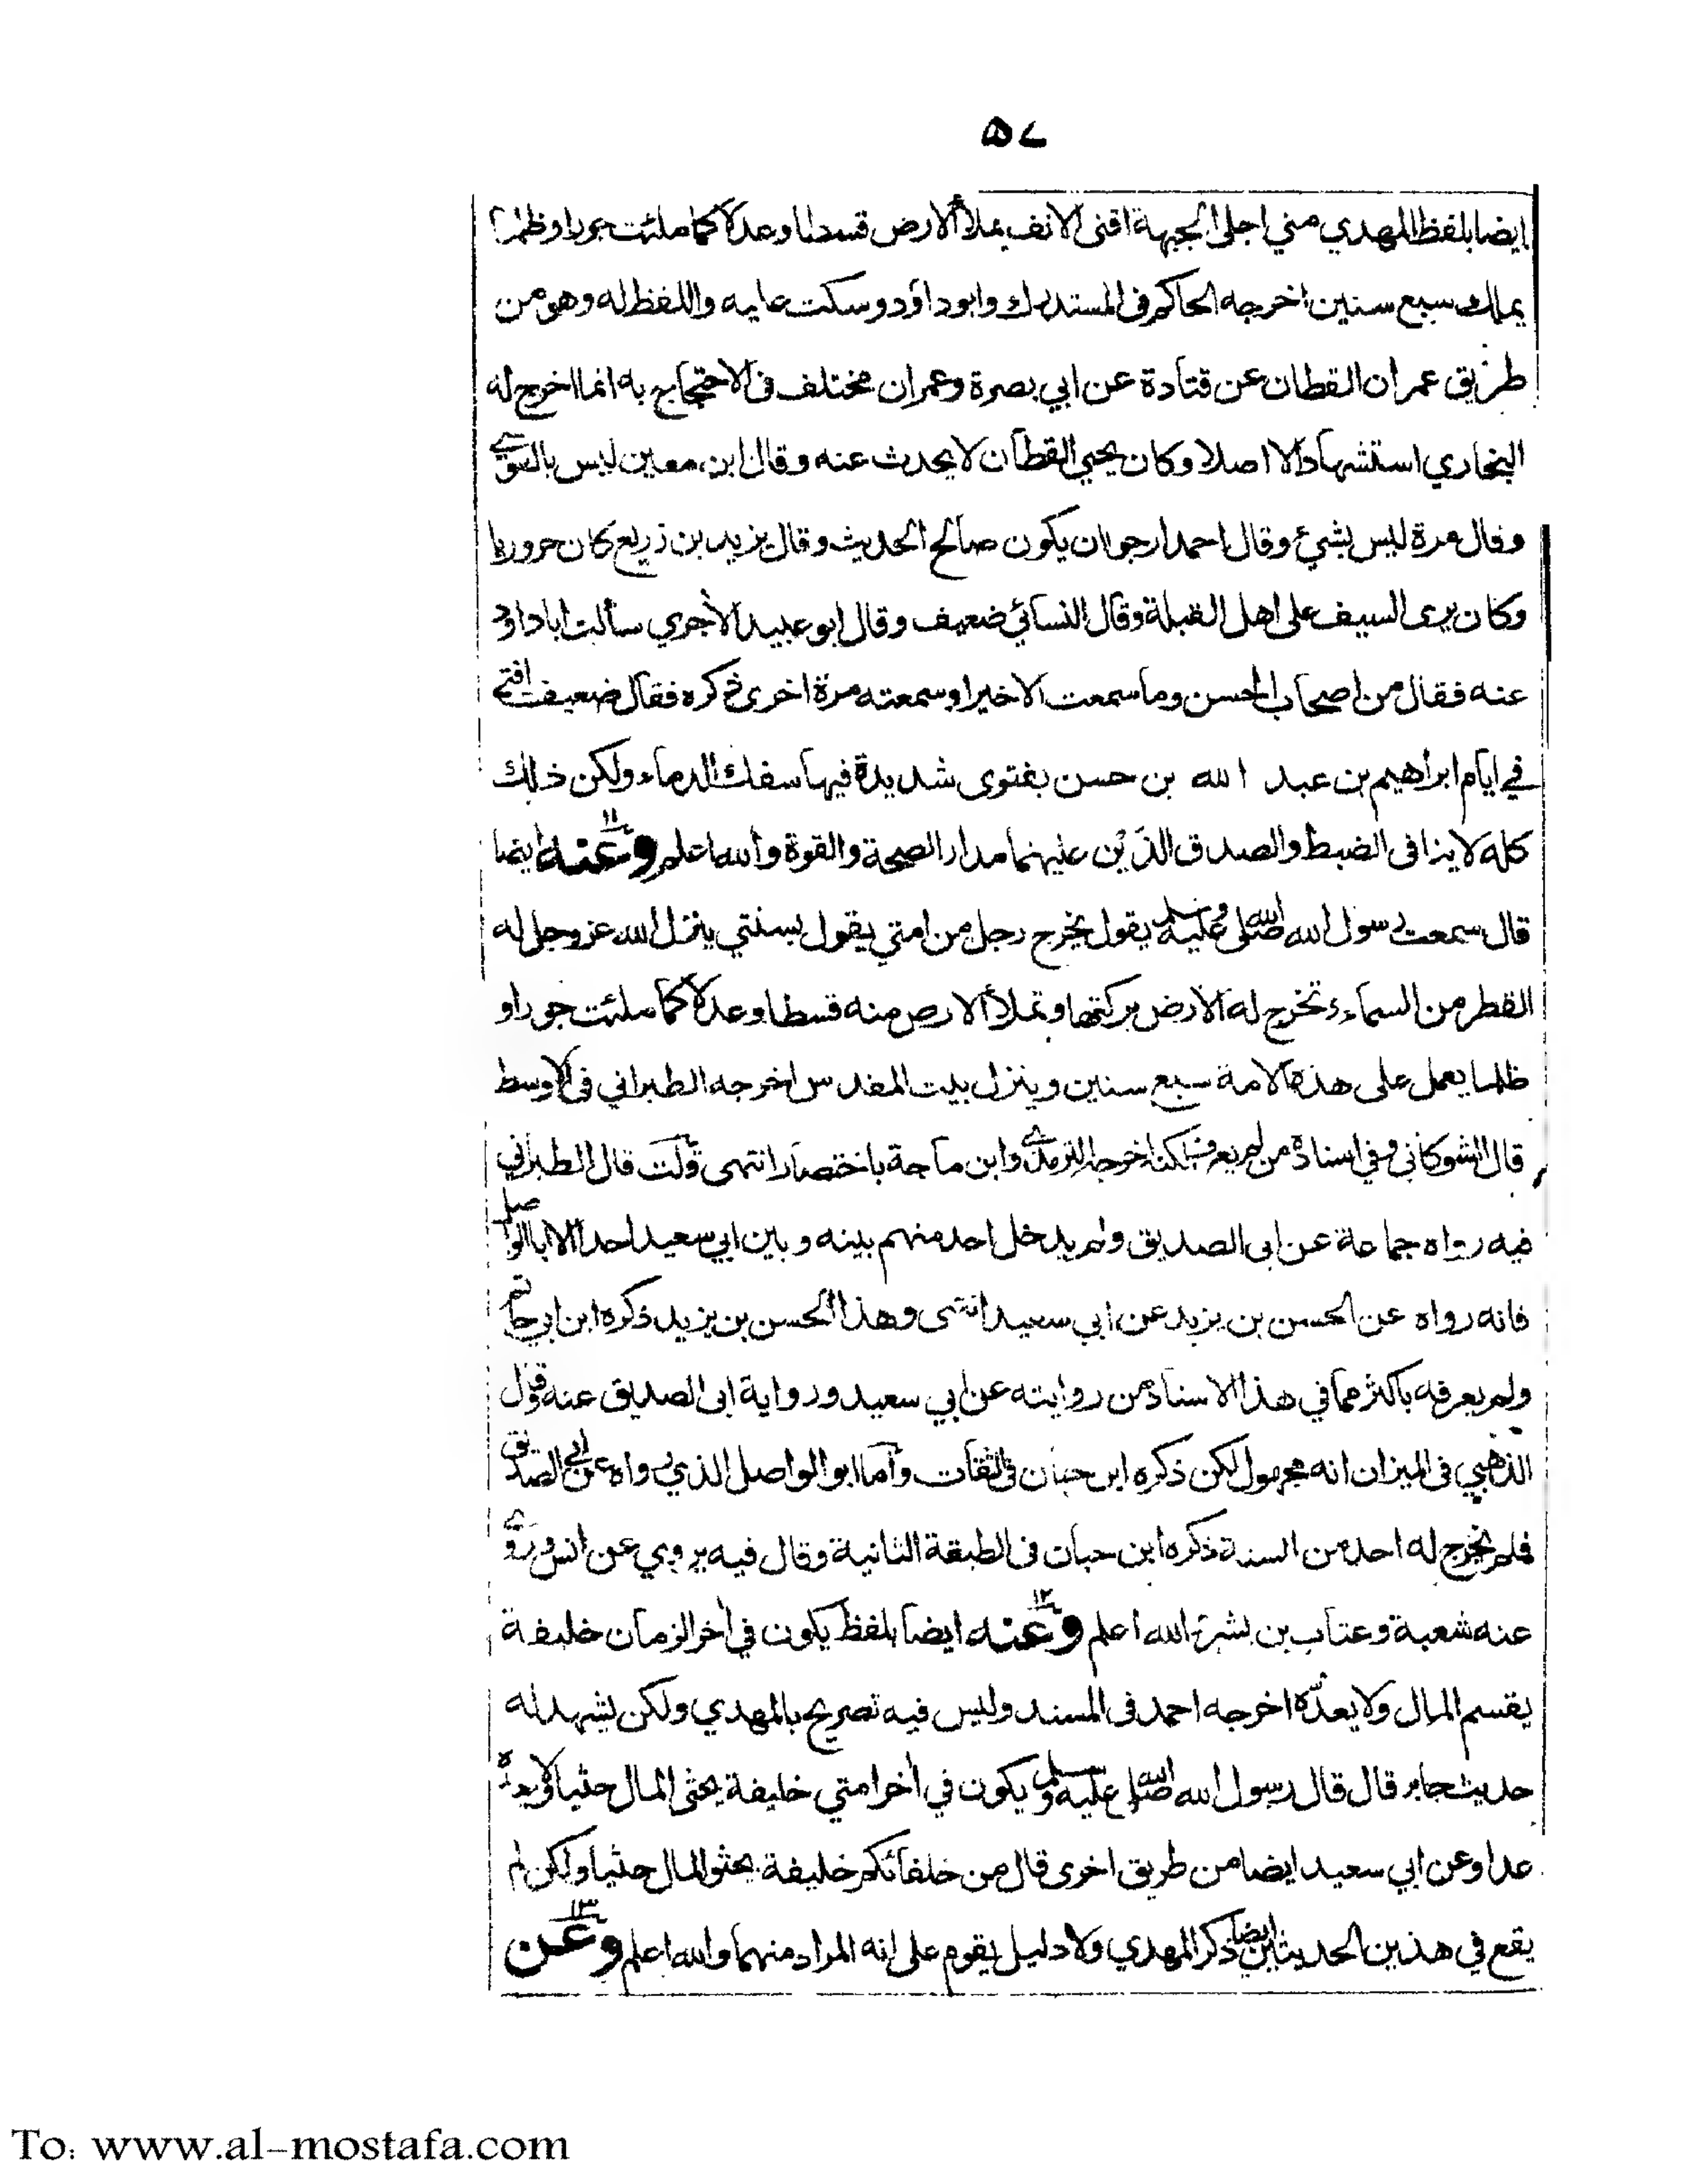 ٥٧
ايضا بلفظ المهدي مني اجلى الجبهة اقنى الانف يملأ الارض قسطا وعدلا كما ملئت جورا وظلما
يملك سبع سنين اخرجه الحاكم فى المستدرك وابوداؤد وسكت عليه واللفظ له وهو من
طريق عمران القطان عن قتادة عن ابي بصرة وعمران مختلف فى الاحتجاج به انما اخرج له
البخاري استشهادا لا اصلا وكان يحيي القطان لا يحدث عنه وقال ابن معين ليس بالقوي
وقال مرة ليس بشئ وقال احمد ارجو ان يكون صالح الحديث وقال يزيد بن زريع كان حروريا
وكان يرى السيف على اهل القبلة وقال النسائي ضعيف وقال ابو عبيد الأجري سألت اباداود
عنه فقال من اصحاب الحسن وما سمعت الا خيرا وسمعته مرة اخرى ذكره فقال ضعيف افتى
في ايام ابراهيم بن عبد الله بن حسن بفتوى شديدة فيها سفك الدماء ولكن ذلك
كله لا ينافى الضبط والصدق الذَين عليهما مدار الصحة والقوة والله اعلم وعنه ١١ ايضا
قال سمعت رسول الله صلى الله عليه وسلم يقول يخرج رجل من امتي يقول بسنتي ينزل الله عز وجل له
القطر من السماء وتخرج له الأرض بركتها وتملأ الارض منه قسطا وعدلا كما ملئت جورا و
ظلما يعمل على هذه الامة سبع سنين وينزل بيت المقدس اخرجه الطبراني فى الاوسط
قال الشوكاني وفي اسناده من لم يعرف لكنه اخرجه الترمذي وابن ماجة باختصار انتهى قلت قال الطبراني
فيه رواه جماعة عن ابى الصديق ولم يدخل احد منهم بينه وبين ابي سعيد احدا الا ابا الواصل
فانه رواه عن الحسن بن يزيد عن ابي سعيد انتهى وهذا الحسن بن يزيد ذكره ابن ابي حاتم
ولم يعرفه باكثر مما في هذا الاسناد من روايته عن ابي سعيد ورواية ابى الصديق عنه وقال
الذهبي فى الميزان انه مجهول لكن ذكره ابن حبان فى الثقات وأما ابو الواصل الذي رواه عن ابي الصديق
فلم يخرج له احد من الستة ذكره ابن حبان فى الطبقة الثانية وقال فيه يروي عن انس وروي
عنه شعبة وعتاب بن بشر والله اعلم وعنه ١٢ ايضا بلفظ يكون في أخر الزمان خليفة
يقسم المال ولا يعدّه اخرجه احمد فى المسند وليس فيه تصريح بالمهدي ولكن يشهد له
حديث جابر قال قال رسول الله صلى الله عليه وسلم يكون في أخر امتي خليفة يحثى المال حثيا ولا يعده
عدا وعن ابي سعيد ايضا من طريق اخرى قال من خلفائكم خليفة يحثو المال حثيا ولكن لم
يقع في هذين الحديثين ايضا ذكر المهدي ولا دليل يقوم على انه المراد منهما والله اعلم وعن ١٣
To: www.al-mostafa.com